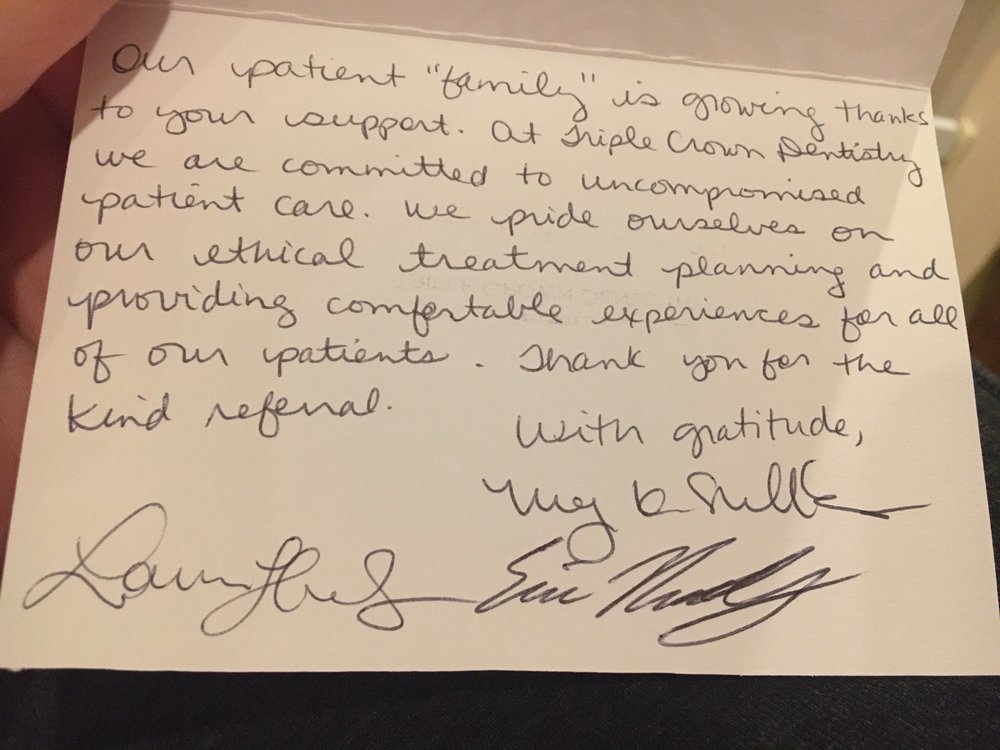 Our patient "family" is growing thanks
to your support. At Triple Crown Dentistry
we are committed to uncompromised
patient care. We pride ourselves on
our ethical treatment planning and
providing comfortable experiences for all
of our patients. Thank you for the
kind referral.
With gratitude,
Meg
Eric